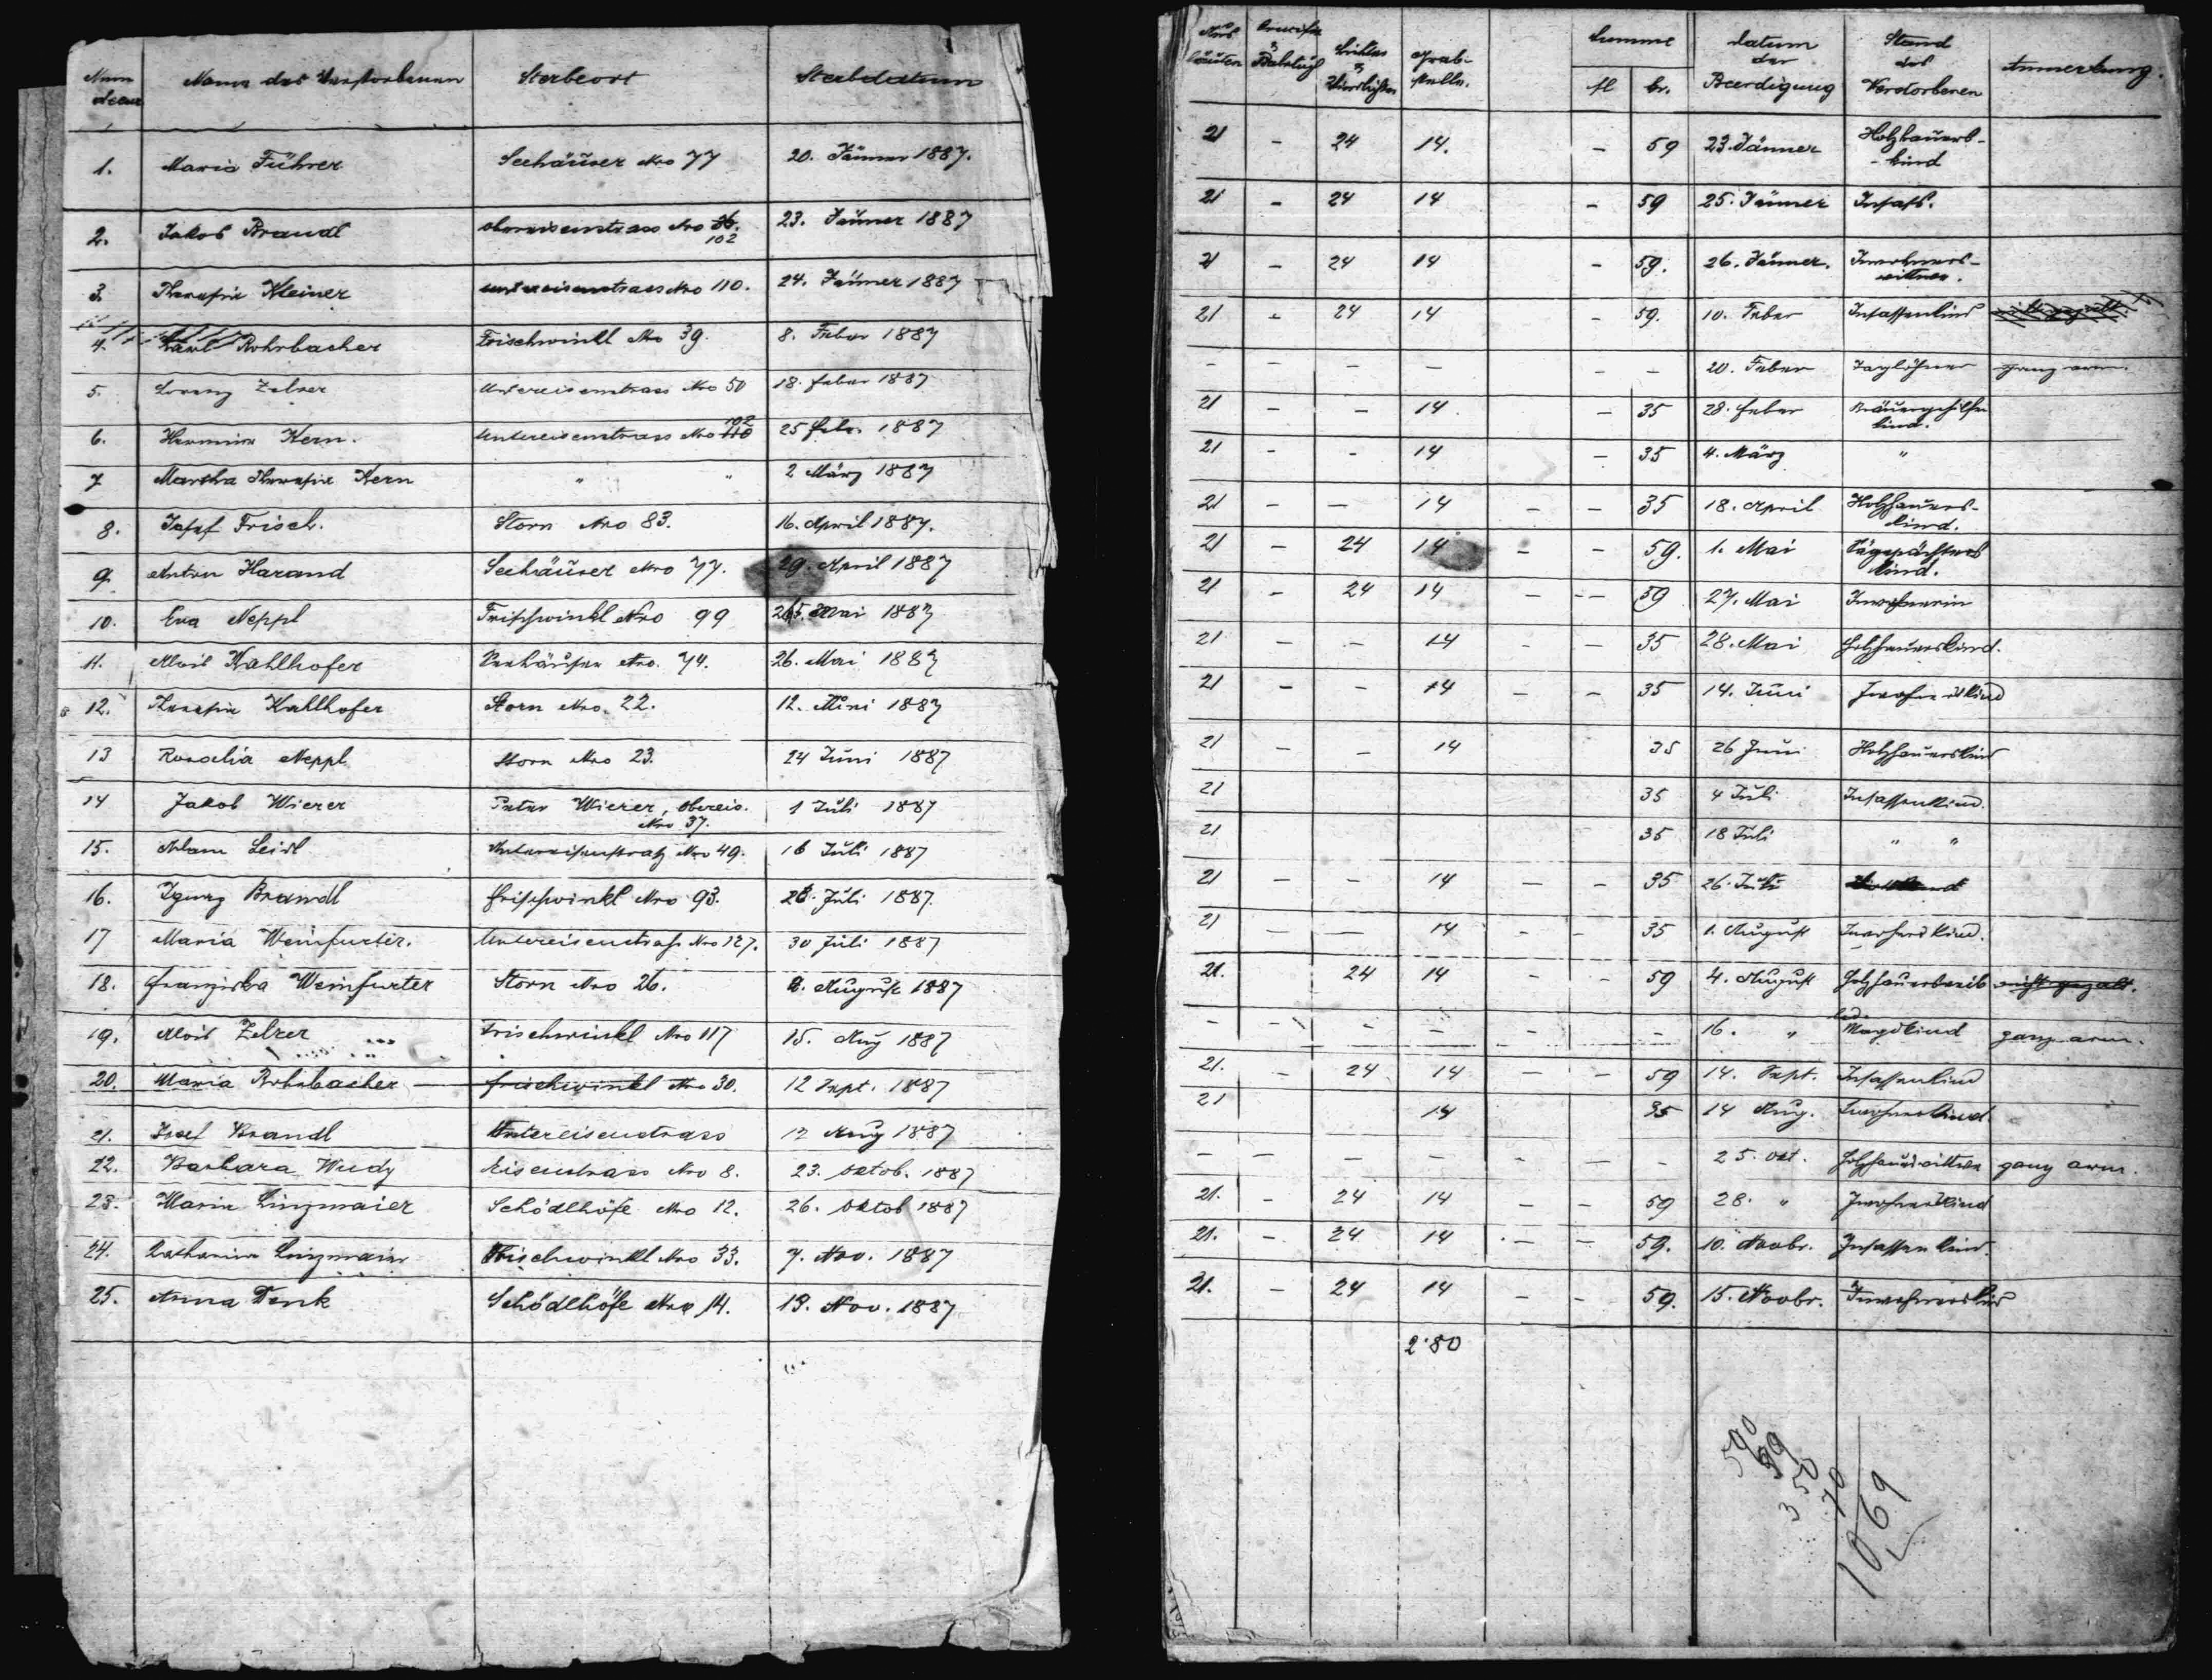 Name des Verstorbenen Sterbeort Sterbdatum
1. Maria Führer Seehäuser Nro 77 20. Jänner 1887.
2. Jakob Brandl obereisenstrass Nro 102 23. Jänner 1887
3. Theresia Kleiner untereisenstrass Nro 110. 24. Jänner 1887
4. Karl Rohrbacher Frischwinkl Nro 39. 8. Feber 1887
5. Lorenz Zelzer Untereisenstrass Nro 50 18. Feber 1887
6. Hermine Kern. Untereisenstrass Nro 102 110 25 Feb. 1887
7 Martha Theresia Kern " " 2 März 1887
8. Josef Frisch. Storn Nro 83. 16. April 1887.
9. Anton Harand Seehäuser Nro 77. 29. April 1887
10. Eva Neppl Frischwinkl Nro 99 Mai 1887
11. Alois Kahlhofer Nro. 74. 26. Mai 1887
12. Theresia Kahlhofer Storn Nro. 22. 12. 1887
13 Rosalia Neppl Storn Nro 23. 24 Juni 1887
14 Jakob Wierer Peter Wierer, Obereis.
Nro 37. 1 Juli 1887
15. Adam Seidl Untereisenstraß Nro 49. 16 Juli 1887
16. Ignaz Brandl Frischwinkl Nro 93. Juli 1887.
17 Maria Weinfurter. Untereisenstraß Nro 127. 30 Juli 1887
18. Franziska Weinfurter Storn Nro 26. 2. August 1887
19. Alois Zelzer Frischwinkl Nro 117 15. Aug 1887
20. Maria Rohrbacher Frischwinkl Nro 30. 12 Sept. 1887
21. Josef Brandl Untereisenstrass 12 Aug 1887
22. Barbara Wudy Eisenstrass Nro 8. 23. Oktob. 1887
23. Maria Linzmaier Schödlhöfe Nro 12. 26. Oktob 1887
24. Katharina Linzmaier Frischwinkl Nro 33. 7. Nov. 1887
25. Anna Denk Schödlhöfe Nro 14. 13. Nov. 1887
läuten Grab-
stelle. Summe
fl kr. Datum
der
Beerdigung Stand
des
Verstorbenen Anmerkung.
21 - 24 14. - 59 23. Jänner Holzhauers-
-kind
21 - 24 14 - 59 25. Jänner Insaß.
21 - 24 14 - 59. 26. Jänner. Inwohners-
witwe.
21 - 24 14 - 59. 10. Feber Insassenkind
- - - - - - 20. Feber Taglöhner ganz arm.
21 - - 14. - 35 28. Feber
kind.
21 - - 14 - 35 4. März "
21 - - 14 - - 35 18. April Holzhauers-
kind.
21 - 24 14 - - 59. 1. Mai Sägepächters
kind.
21 - 24 14 - - 59 27. Mai Inwohnerin
21 - - 14 - - 35 28. Mai Holzhauerskind.
21 - - 14 - - 35 14. Juni Inwohnerskind
21 - - 14 35 26 Juni Holzhauerskind
21 35 4 Juli Insassenkind.
21 35 18 Juli " "
21 - - 14 - - 35 26. Juli
21 - - 14 - - 35 1. August Inwohnerskind.
21. 24 14 - - 59 4. August Holzhauersweib nicht gezalt.
- - - - - 16. " led.
Magdkind ganz arm.
21. - 24 14 - - 59 14. Sept. Insassenkind
21 14 35 14 Aug. Inwohnerskind.
- - - - - - - 25. Okt. Holzhauerswittwe ganz arm.
21. - 24 14 - - 59 28. " Inwohnerskind
21. - 24 14 - - 59. 10. Novbr. Insassenkind.
21. - 24 14 - - 59. 15. Novbr. Inwohnerskind
2·80
590
3 50
70
1069